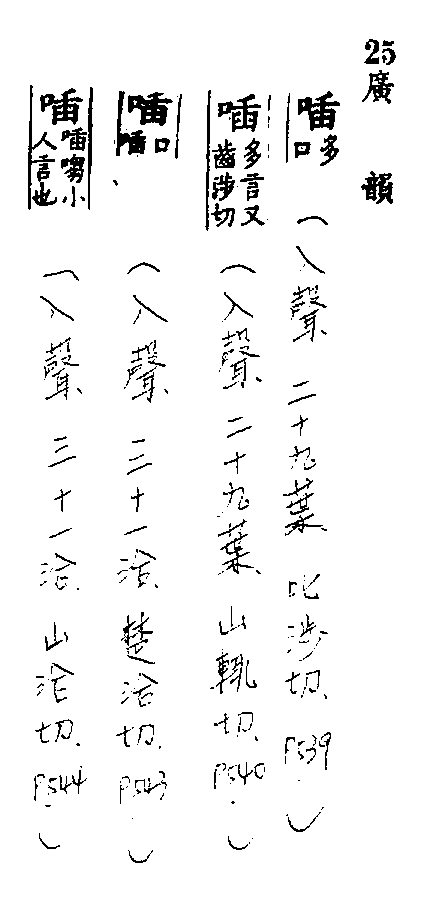 25廣韻
喢 多口（入聲、二十九葉、叱涉切、P539.）
喢 多言又齒涉切（入聲、二十九葉、山輒切、P540.）
喢 口喢（入聲、三十一洽、楚洽切、P543.）
喢 喢小人言也（入聲、三十一洽、山洽切、P544.）